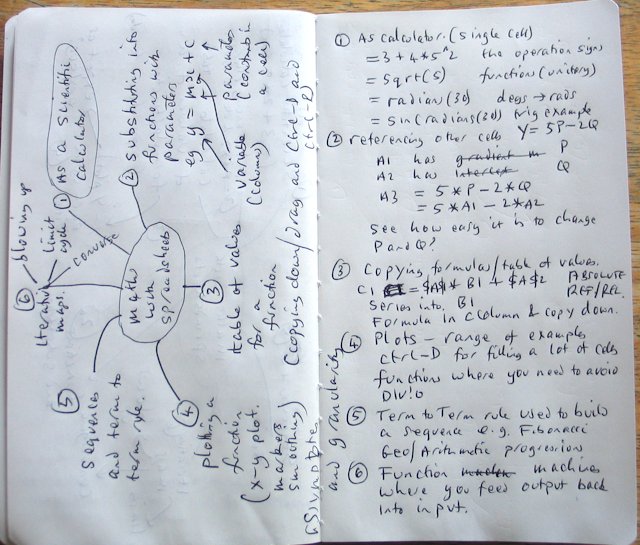 maths
with
spreadsheets
① As a scientific
calculator
② substituting into
functions with
parameters
eg y = mx + c
variable
(column)
parameters
(contents in
a cell)
③ table of values
for a
function
(copying down/drag and Ctrl-D and
Ctrl-R)
④ plotting a
function
(x-y plot.
markers
smoothing)
asymptotes
and granularity
⑤ Sequences
and term to
term rule.
⑥ Iterative
maps.
blowing up
limit
cycle
converse
① As calculator. (single cell)
= 3 + 4 * 5 ^ 2 the operation signs
= Sqrt(5) functions (unitary)
= radians(30) degs → rads
= sin(radians(30)) trig example
② referencing other cells Y = 5P - 2Q
A1 has gradient m P
A2 has intercept Q
A3 = 5 * P - 2 * Q
= 5 * A1 - 2 * A2
See how easy it is to change
P and Q?
③ Copying formulas/table of values.
C1 = $A$1 * B1 + $A$2 ABSOLUTE
REF/REL.
Series into B1
Formula in C column & copy down.
④ Plots - range of examples
ctrl-D for filling a lot of cells
functions where you need to avoid
Div/0
⑤ Term to Term rule used to build
a sequence e.g. Fibonacci
Geo/Arithmetic progressions
⑥ Function machines
where you feed output back
into input.